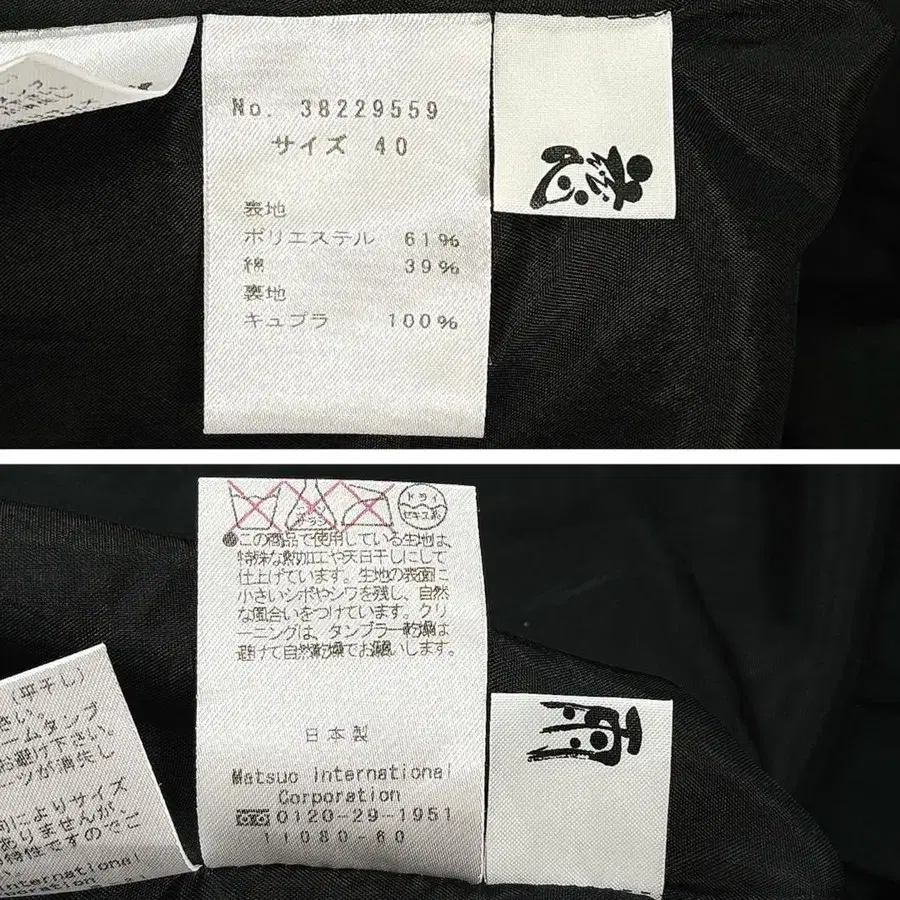 No. 38229559
サイズ 40
表地
ポリエステル 61%
綿 39%
裏地
キュプラ 100%
サラシ
ドライ
セキユ系
●この商品で使用している生地は、
特殊な熱加工や天日干しにして
仕上げています。生地の表面に
小さいシボやシワを残し、自然
な風合いをつけています。クリ
ーニングは、タンブラー乾燥は
避けて自然乾燥でお願いします。
日本製
Matsuo International
Corporation
0120-29-1951
11080-60
(平干し)
さい。
ームタンブ
お避け下さい。
ツが消失し
によりサイズ
ありませんが、
特性ですのでご
い。
International